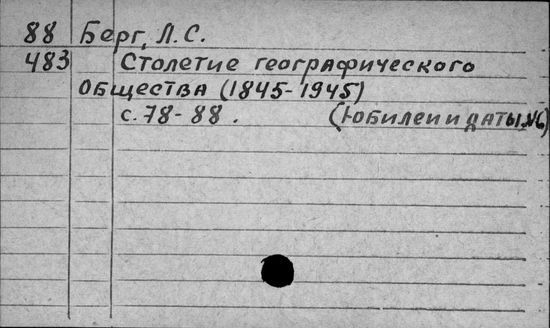 88 Берг, Л.С.
483 Столетие географического
общества (1845-1945)
с. 78-88. (Юбилеи и даты, №6)